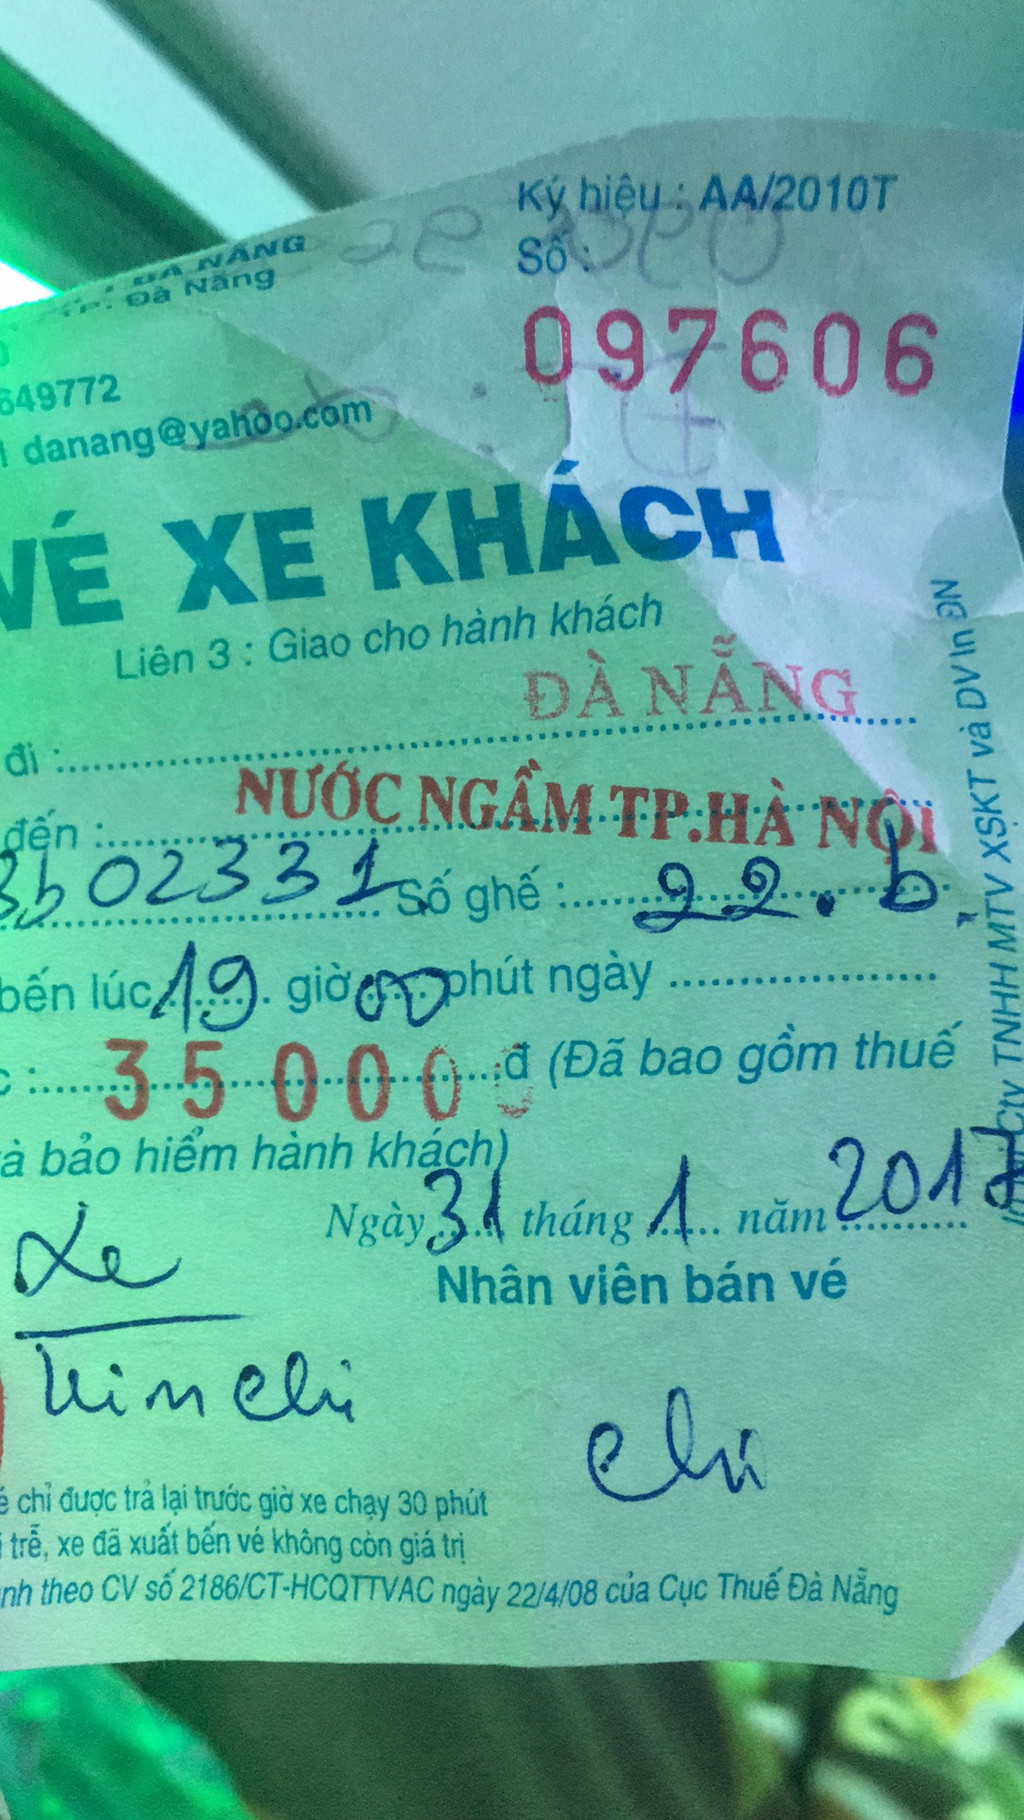 Ký hiệu : AA/2010T
ĐÀ NẴNG
TP. Đà Nẵng
Số :
097606
649772
danang@yahoo.com
VÉ XE KHÁCH
Liên 3 : Giao cho hành khách
đi : ĐÀ NẴNG
đến : NƯỚC NGẦM TP.HÀ NỘI
3b 02331 Số ghế : 22.b
bến lúc 19 giờ 00 phút ngày
350000 đ (Đã bao gồm thuế
à bảo hiểm hành khách)
Ngày 31 tháng 1 năm 2017
Xe
Nhân viên bán vé
Kim Chi
Chi
é chỉ được trả lại trước giờ xe chạy 30 phút
trễ, xe đã xuất bến vé không còn giá trị
nh theo CV số 2186/CT-HCQTTVAC ngày 22/4/08 của Cục Thuế Đà Nẵng
Cty TNHH MTV XSKT và DV In ĐN